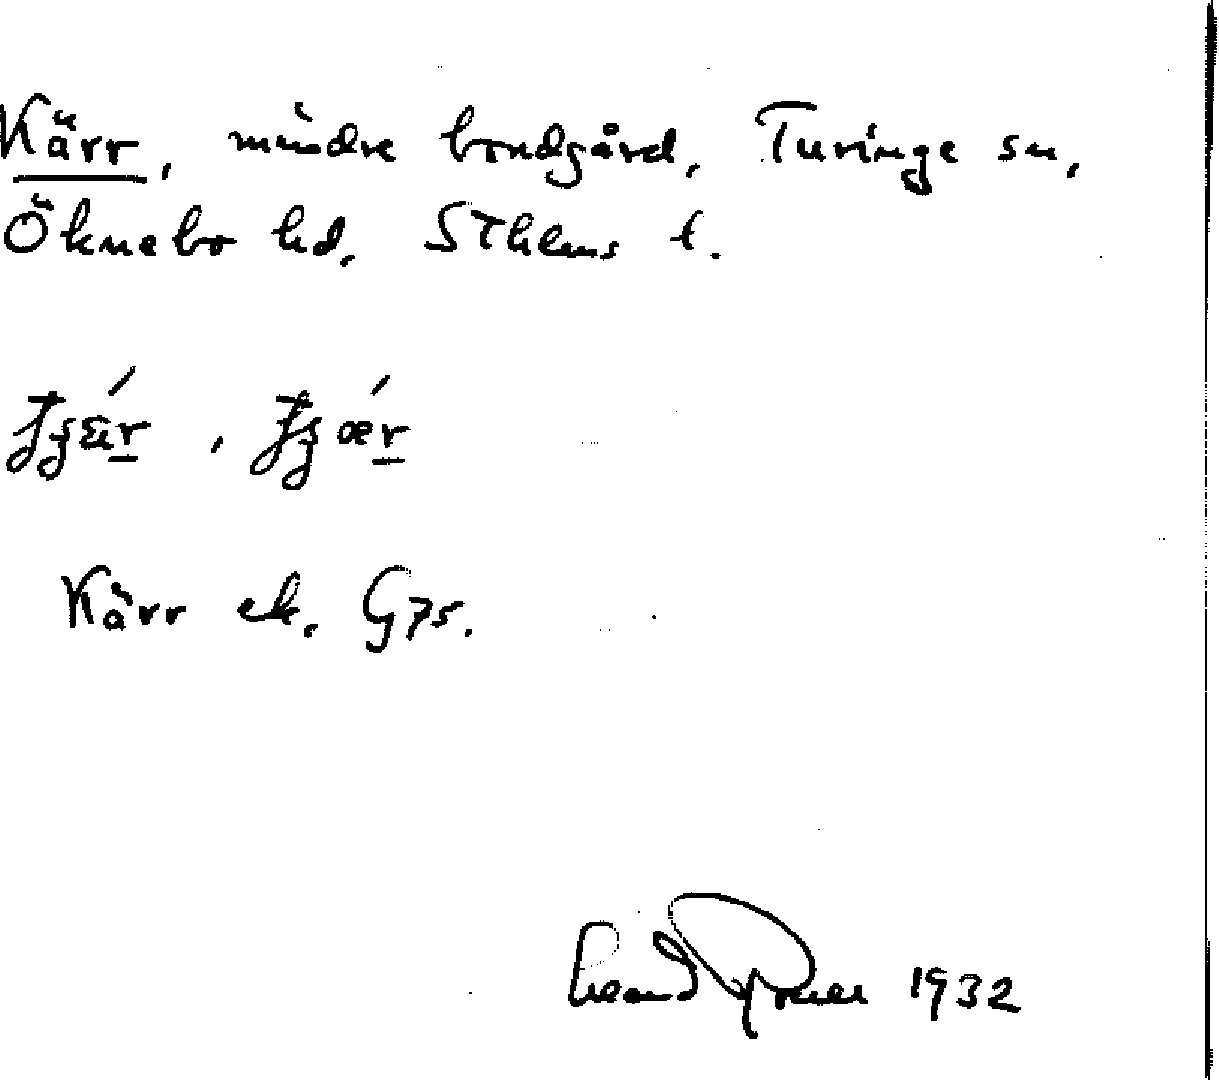 Kärr, mindre bondgård, Turinge sn,
Öknebo hd, Sthlms l.
Kärr ek. G75.
1932